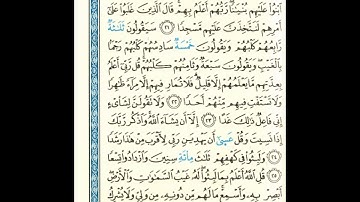 ابْنُوا عَلَيْهِم بُنْيَٰنًا رَّبُّهُمْ أَعْلَمُ بِهِمْ قَالَ الَّذِينَ غَلَبُوا عَلَىٰ
أَمْرِهِمْ لَنَتَّخِذَنَّ عَلَيْهِم مَّسْجِدًا ٢١ سَيَقُولُونَ ثَلَٰثَةٌ
رَّابِعُهُمْ كَلْبُهُمْ وَيَقُولُونَ خَمْسَةٌ سَادِسُهُمْ كَلْبُهُمْ رَجْمًا
بِالْغَيْبِ وَيَقُولُونَ سَبْعَةٌ وَثَامِنُهُمْ كَلْبُهُمْ قُل رَّبِّي أَعْلَمُ
بِعِدَّتِهِم مَّا يَعْلَمُهُمْ إِلَّا قَلِيلٌ فَلَا تُمَارِ فِيهِمْ إِلَّا مِرَآءً ظَٰهِرًا
وَلَا تَسْتَفْتِ فِيهِم مِّنْهُمْ أَحَدًا ٢٢ وَلَا تَقُولَنَّ لِشَا۟يْءٍ
إِنِّي فَاعِلٌ ذَٰلِكَ غَدًا ٢٣ إِلَّا أَن يَشَآءَ اللَّهُ وَاذْكُر رَّبَّكَ
إِذَا نَسِيتَ وَقُلْ عَسَىٰ أَن يَهْدِيَنِ رَبِّي لِأَقْرَبَ مِنْ هَٰذَا رَشَدًا
٢٤ وَلَبِثُوا فِي كَهْفِهِمْ ثَلَٰثَ مِا۟ئَةٍ سِنِينَ وَازْدَادُوا تِسْعًا
٢٥ قُلِ اللَّهُ أَعْلَمُ بِمَا لَبِثُوا لَهُ غَيْبُ السَّمَٰوَٰتِ وَالْأَرْضِ
أَبْصِرْ بِهِ وَأَسْمِعْ مَا لَهُم مِّن دُونِهِ مِن وَلِيٍّ وَلَا يُشْرِكُ